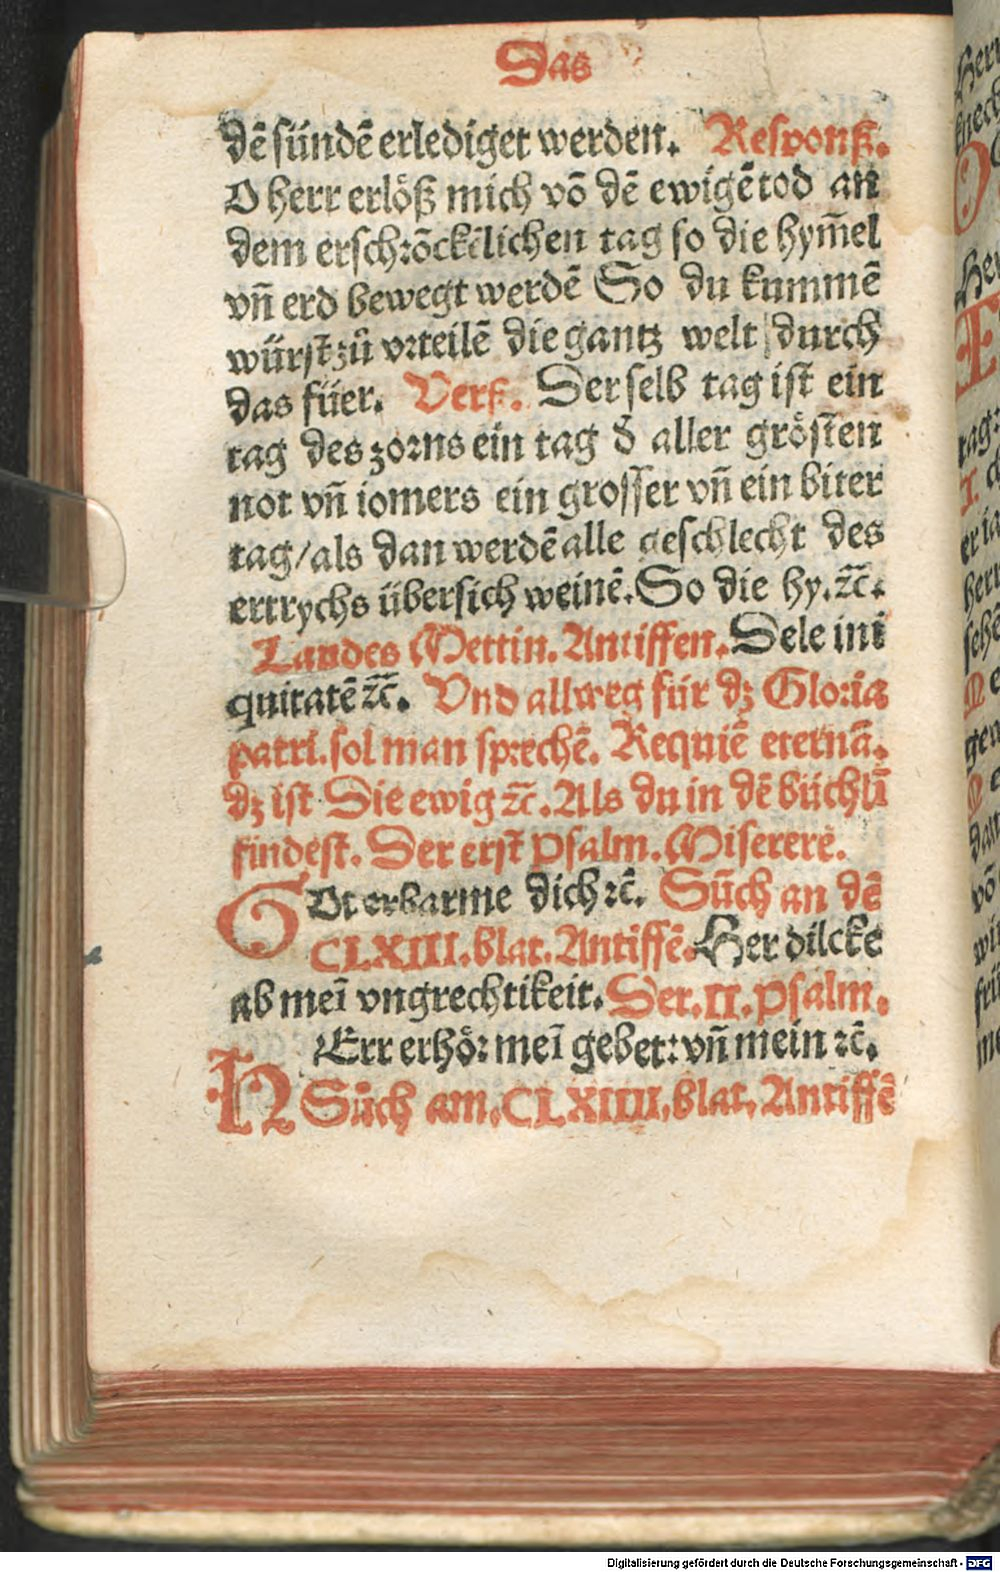 Das
dē sündē erlediget werden. Responß.
O herr erlöß mich vō dē ewigē tod an
dem erschrōckēlichen tag so die hym̄el
vn̄ erd bewegt werdē So du kummē
würst zů vrteilē die gantz welt / durch
das füer. Verß. Der selb tag ist ein
tag des zorns ein tag d̄ aller grösten
not vn̄ iomers ein grosser vn̄ ein biter
tag/als dan werdē alle geschlecht des
ertrychs übersich weinē. So die hy. ꝛc̄.
Laudes Mettin. Antiffen. Dele ini
quitatē ꝛc̄. Vnd allweg für dz Gloria
patri. sol man sprechē. Requiē eternā.
dz ist Die ewig ꝛc̄. Als du in dē büchlī
findest. Der erst Psalm. Miserere.
GOt erbarme dich ꝛc̄. Sůch an dē
CLXIII. blat. Antiffē. Her dilcke
ab meī vngrechtikeit. Der. II. Psalm.
HErr erhör meī gebet: vn̄ mein ꝛc̄.
Sůch am. CLXIIII. blat. Antiffē
Digitalisierung gefördert durch die Deutsche Forschungsgemeinschaft - DFG